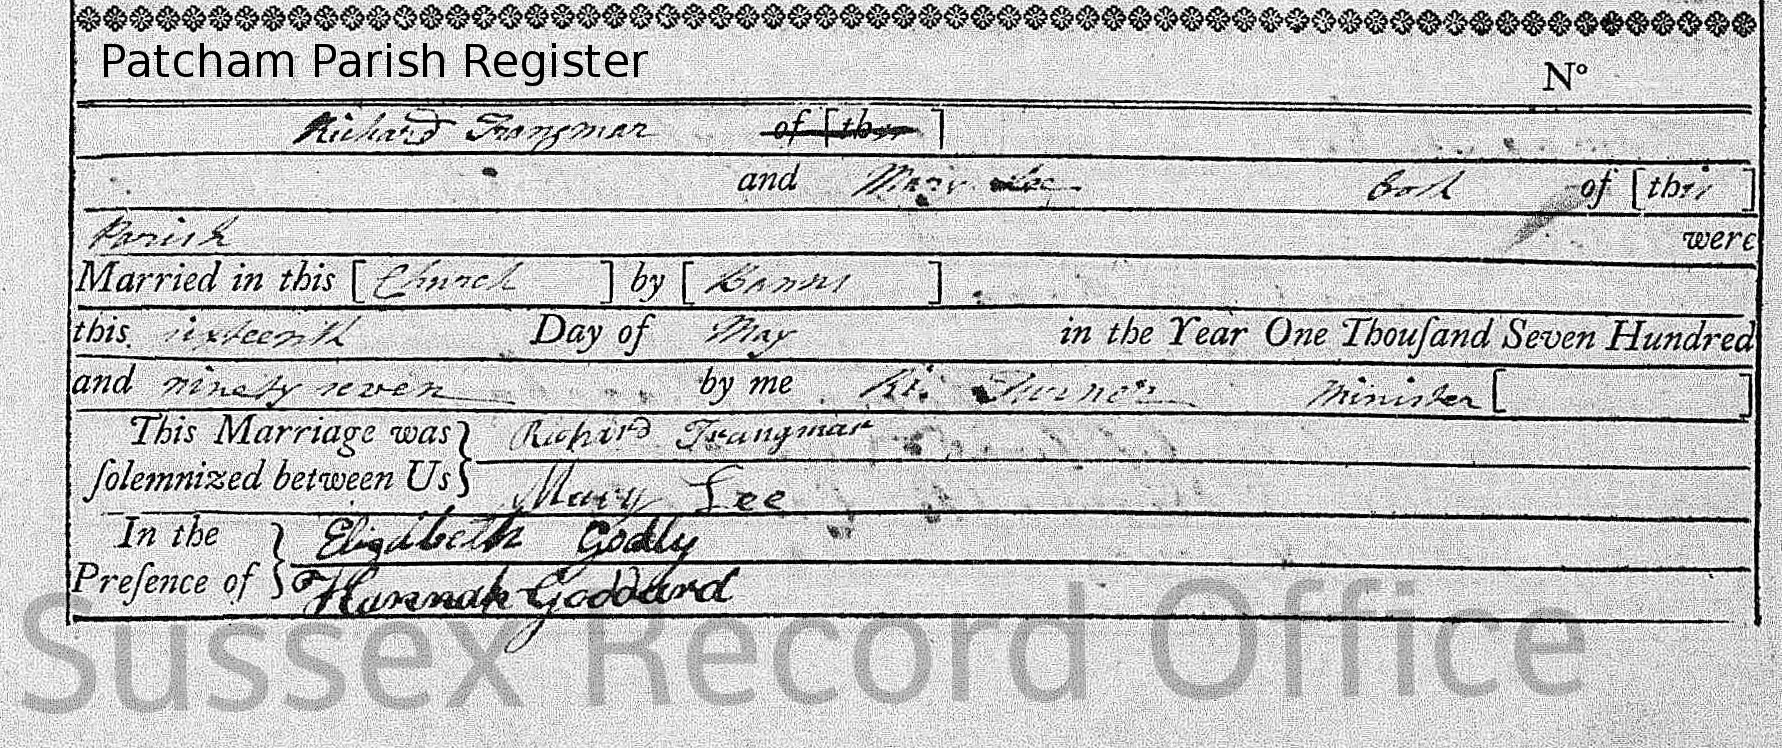 Patcham Parish Register
N°
Richard Trangmar of [this ]
and Mary Lee both of [this ]
Parish were
Married in this [ Church ] by [ Banns ]
this sixteenth Day of May in the Year One Thouſand Seven Hundred
and ninety seven by me Turner Minister [ ]
This Marriage was } Richard Trangmar
ſolemnized between Us } Mary Lee
In the } Elizabeth Godly
Preſence of } Hannah Goddard
Sussex Record Office